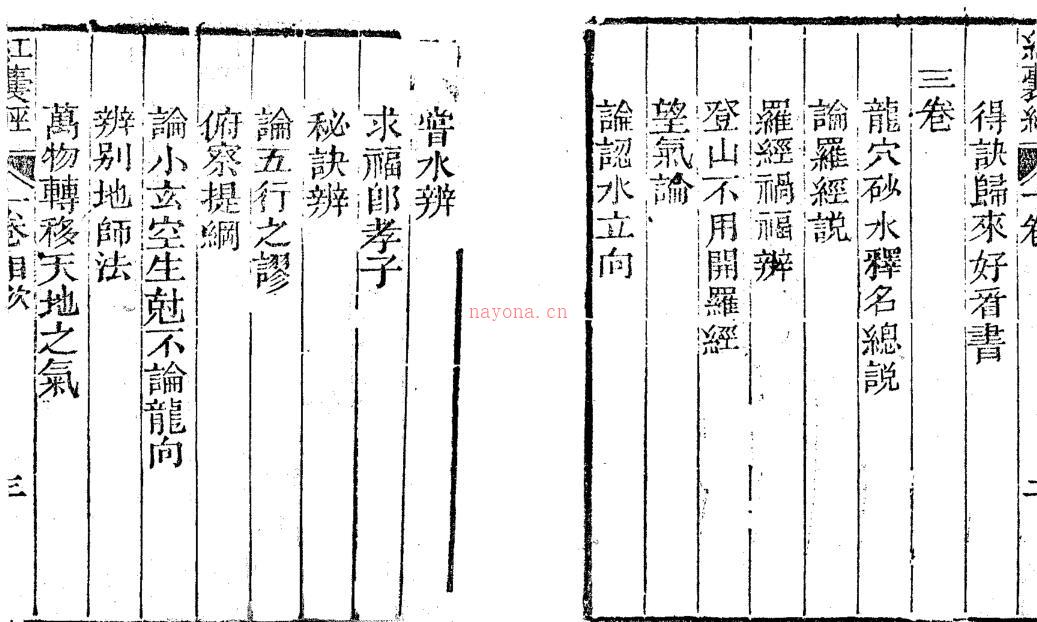 紅囊經
一卷
二
得訣歸來好看書
三卷
龍穴砂水釋名總説
論羅經説
羅經禍福辨
登山不用開羅經
望氣論
論認水立向
nayona.cn
嘗水辨
求福卽孝子
秘訣辨
論五行之謬
俯察提綱
論小玄空生尅不論龍向
辨别地師法
萬物轉移天地之氣
紅囊經
一卷目次
三